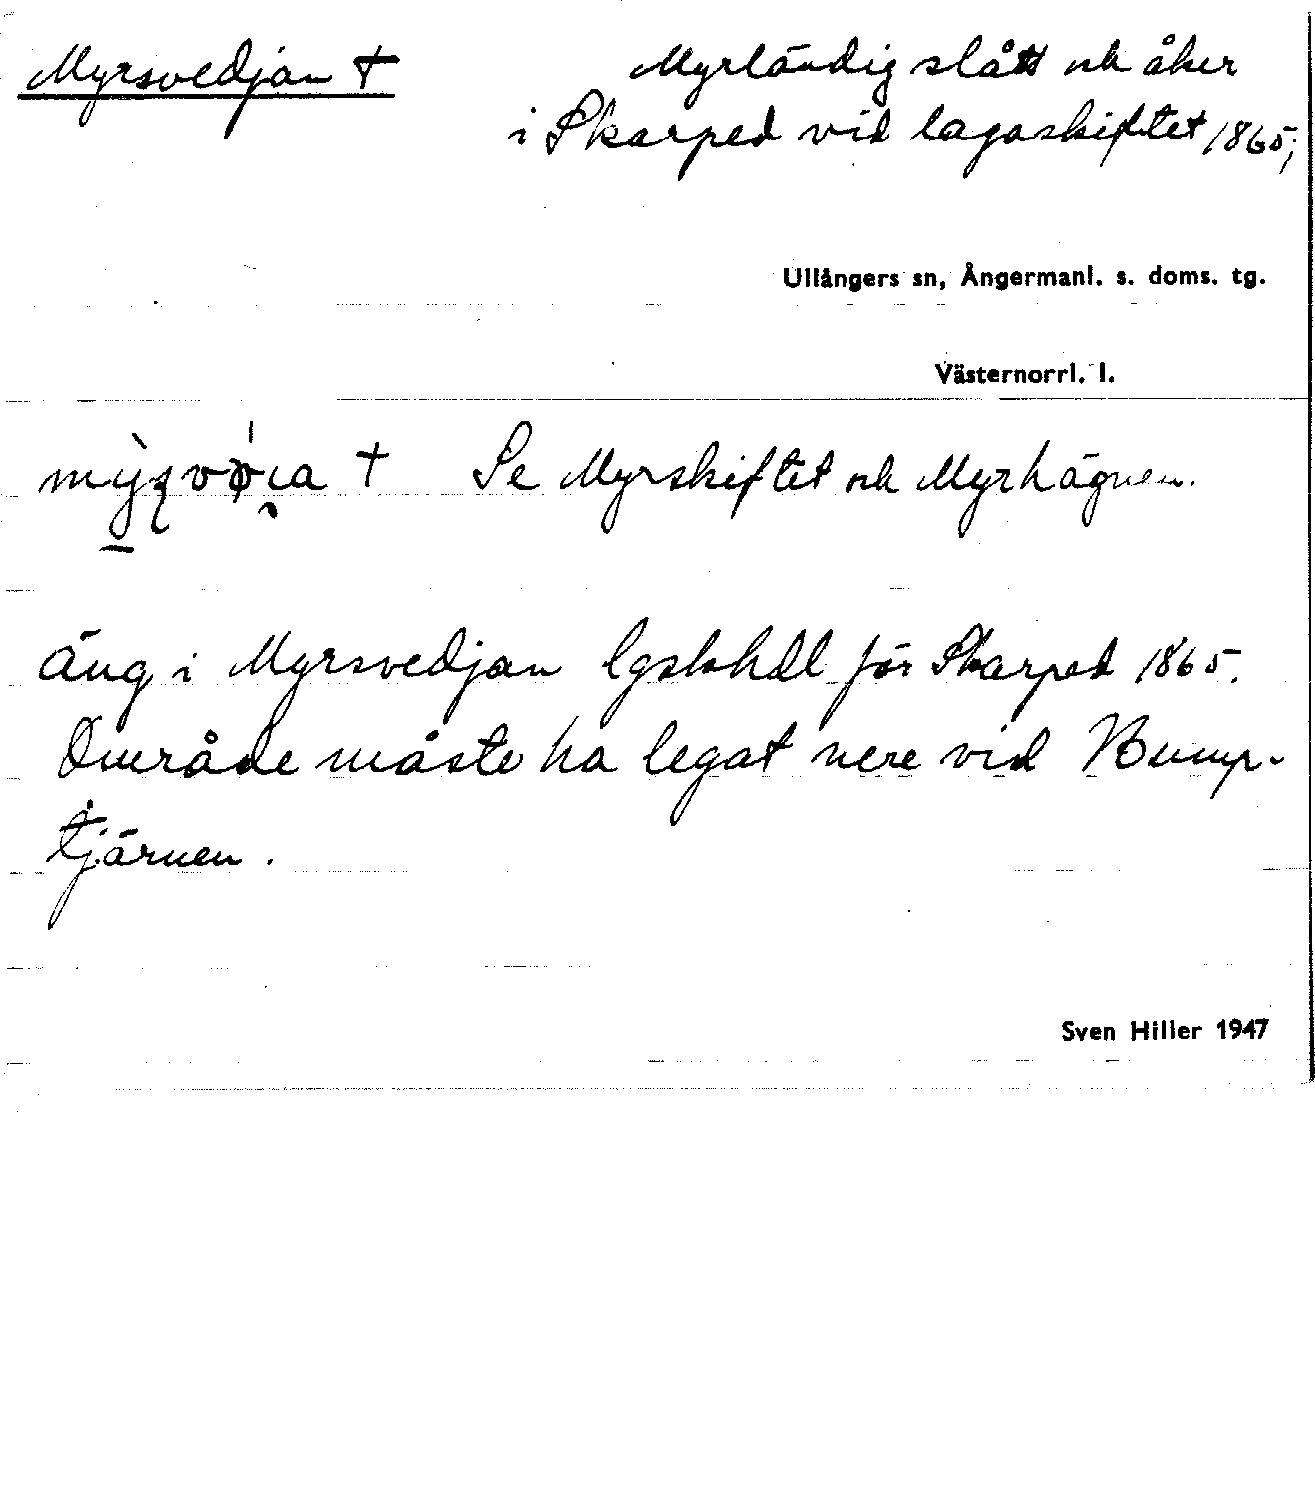 Myrsvedjan †
Myrländig slått och åker
i Skarped vid lagaskiftet 1865;
Ullångers sn, Ångermanl. s. doms. tg.
Västernorrl. l.
† Se Myrskiftet och Myrhägnen.
äng i Myrsvedjan lgskhdl för Skarped 1865.
Område måste ha legat nere vid Bump-
tjärnen.
Sven Hiller 1947